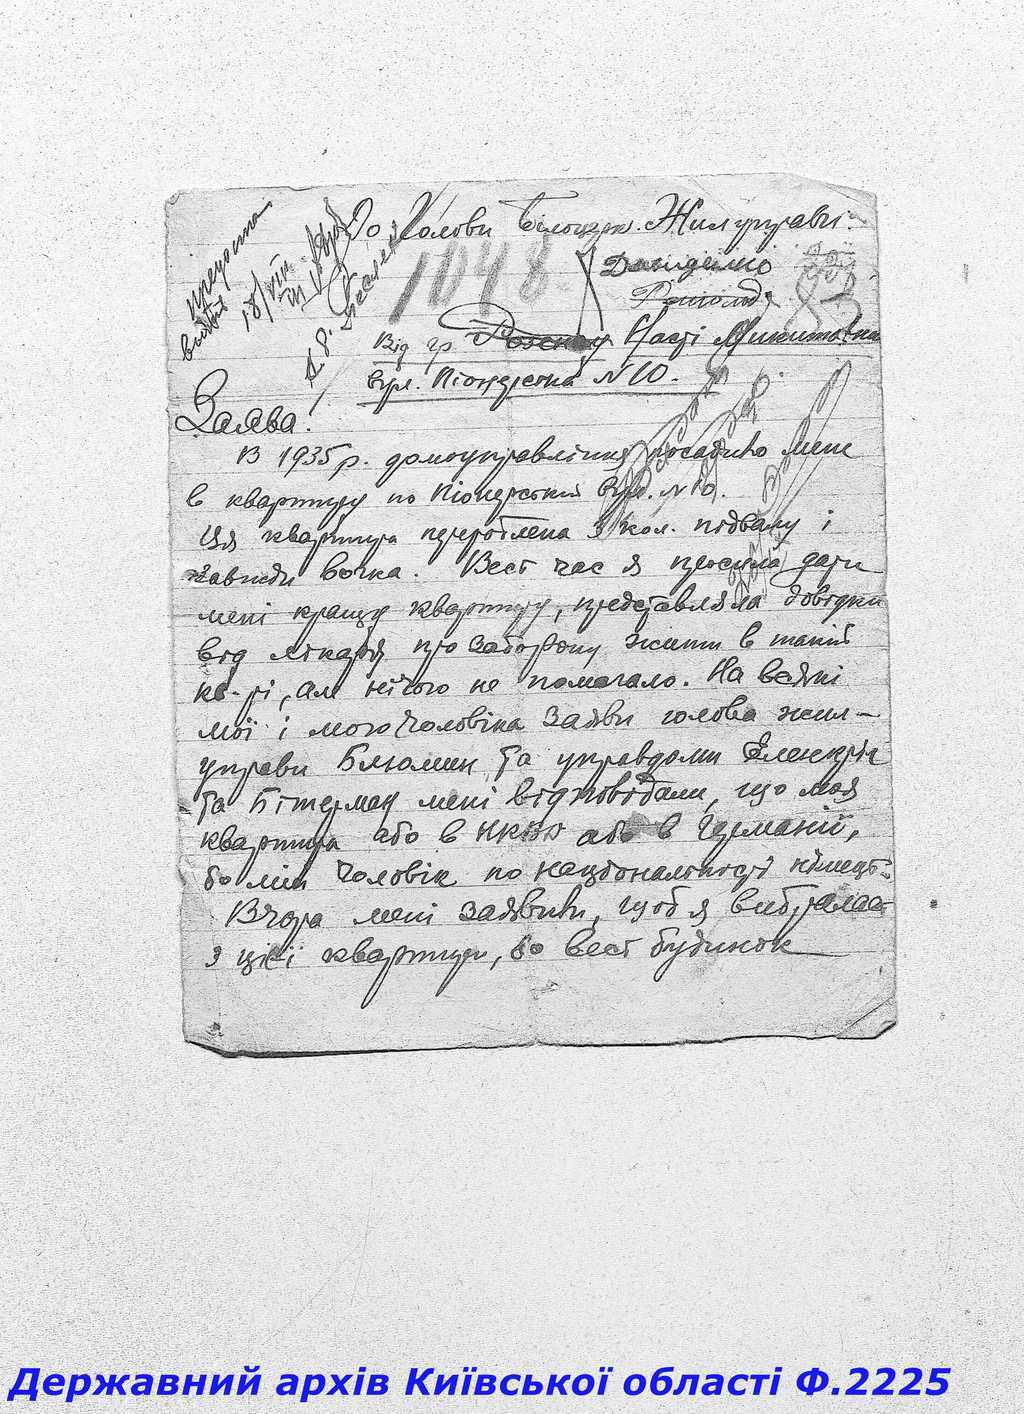 До Голови Білоцерк. Жилуправи.
1048
Від гр. Насті Микитовни
вул. Піонерська N 10.
Заява.
В 1935 р. домоуправління посадило мене
в квартиру по Піонерській вул. N 10.
Ця квартира перероблена з кол. підвалу і
завжди вогка. Весь час я просила дати
мені кращу квартиру, представляла довідки
від лікаря про заборону жити в такій
кв-рі, але нічого не помагало. На всякі
мої і мого чоловіка заяви голова жил-
управи Блюмин та управдоми
та Бітерман мені відповідали, що моя
квартира або в НКВД або в Германії,
бо мій чоловік по національності німець.
Вчора мені заявили, щоб я вибралась
з цієї квартири, бо весь будинок
Державний архів Київської області Ф.2225